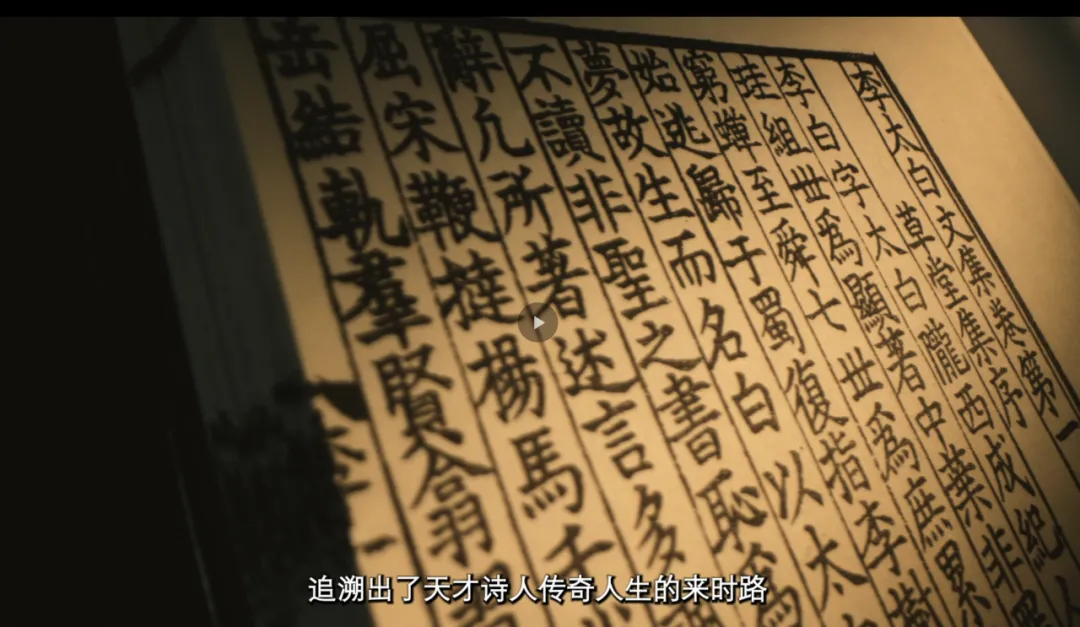 李太白文集卷第一
草堂集序
李白字太白隴西成紀人
珪組世爲顯著中葉非罪
窮蟬至舜七世爲庶累
始逃歸于蜀復指李樹
夢故生而名白以太
不讀非聖之書恥爲
辭凢所著述言多
屈宋鞭撻楊馬千
羣賢翕
追溯出了天才诗人传奇人生的来时路